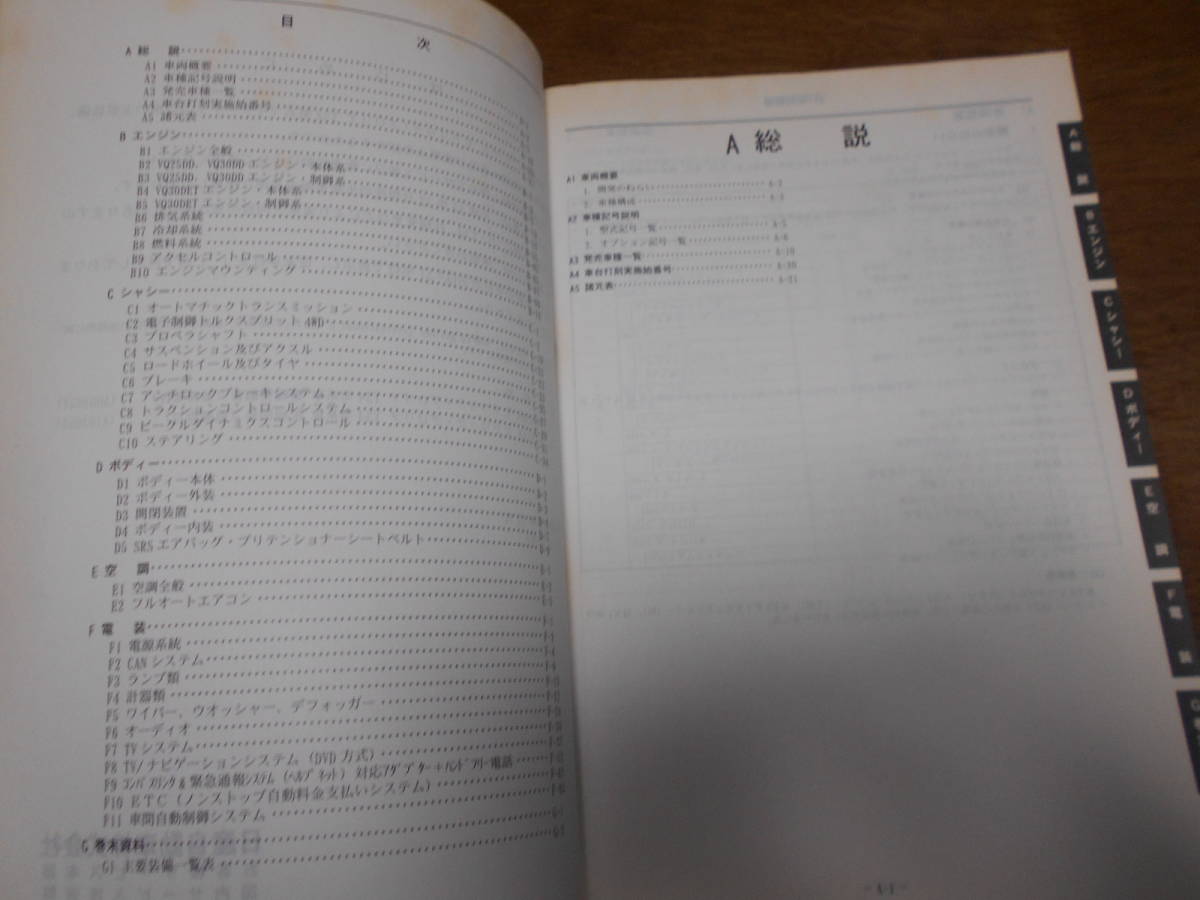 目　　次
A 総　説
A1 車両概要
A2 車種記号説明
A3 発売車種一覧
A4 車台打刻実施始番号
A5 諸元表
B エンジン
B1 エンジン全般
B2 VQ25DD、VQ30DD エンジン・本体系
B3 VQ25DD、VQ30DD エンジン・制御系
B4 VQ30DET エンジン・本体系
B5 VQ30DET エンジン・制御系
B6 排気系統
B7 冷却系統
B8 燃料系統
B9 アクセルコントロール
B10 エンジンマウンティング
C シャシー
C1 オートマチックトランスミッション
C2 電子制御トルクスプリット 4WD
C3 プロペラシャフト
C4 サスペンション及びアクスル
C5 ロードホイール及びタイヤ
C6 ブレーキ
C7 アンチロックブレーキシステム
C8 トラクションコントロールシステム
C9 ビークルダイナミクスコントロール
C10 ステアリング
D ボディー
D1 ボディー本体
D2 ボディー外装
D3 開閉装置
D4 ボディー内装
D5 SRS エアバッグ・プリテンショナーシートベルト
E 空　調
E1 空調全般
E2 フルオートエアコン
F 電　装
F1 電源系統
F2 CAN システム
F3 ランプ類
F4 計器類
F5 ワイパー、ウオッシャー、デフォッガー
F6 オーディオ
F7 TV システム
F8 TV/ナビゲーションシステム（DVD 方式）
F9 コンパスリンク & 緊急通報システム（ヘルプネット）対応アダプター＋ハンドフリー電話
F10 ETC（ノンストップ自動料金支払いシステム）
F11 車間自動制御システム
G 巻末資料
G1 主要装備一覧表
A 総　説
A1 車両概要
1. 開発のねらい A-2
2. 車種構成 A-3
A2 車種記号説明
1. 型式記号一覧 A-5
2. オプション記号一覧 A-6
A3 発売車種一覧 A-19
A4 車台打刻実施始番号 A-20
A5 諸元表 A-21
- A-1 -
A 総　説
B エンジン
C シャシー
D ボディー
E 空　調
F 電　装